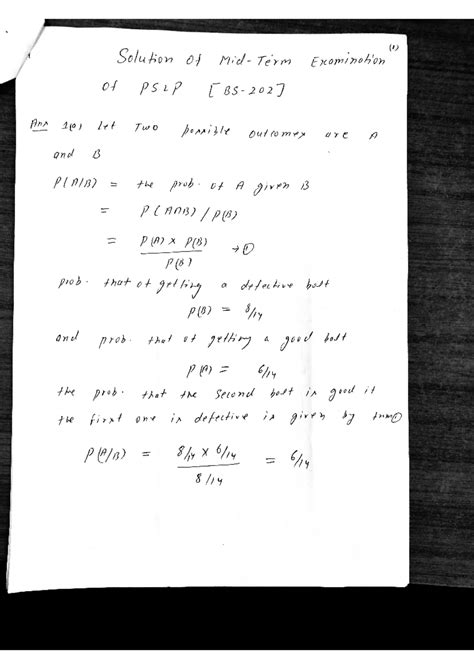 (1)
Solution of Mid-Term Examination
of PSLP [BS-202]
Ans 1(a) let Two possible outcomes are A
and B
P(A/B) = the prob. of A given B
= P(A∩B) / P(B)
= P(A) x P(B) / P(B) → ①
prob. that of getting a defective bolt
P(B) = 8/14
and prob. that of getting a good bolt
P(A) = 6/14
the prob. that the second bolt is good if
the first one is defective is given by from ①
P(A/B) = 8/14 x 6/14 / 8/14 = 6/14